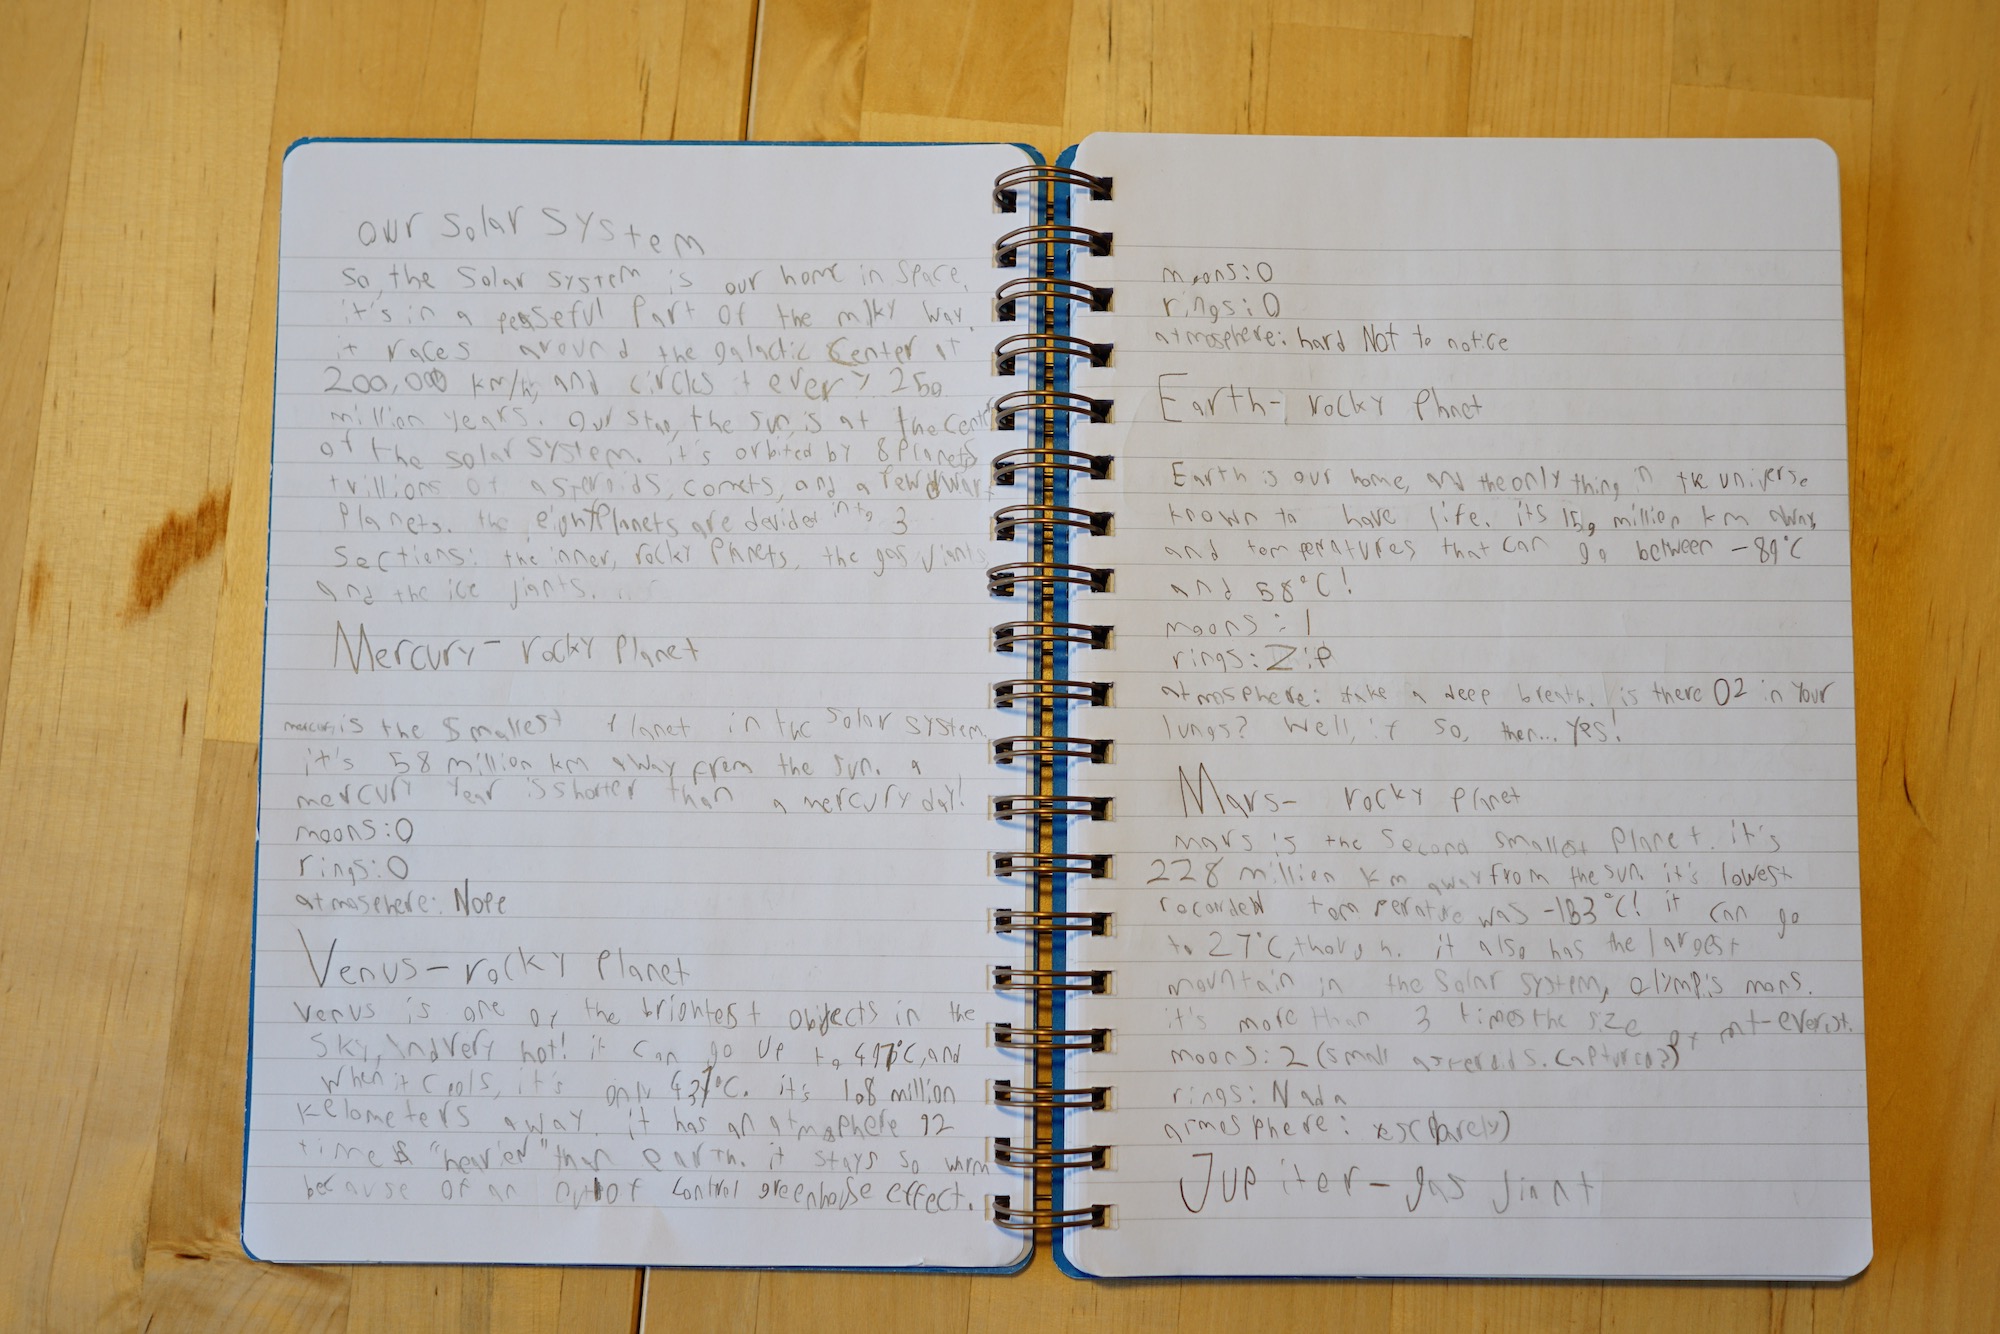 our solar system
so, the solar system is our home in space.
it's in a peaseful part of the milky way.
it races around the galactic center at
200,000 km/h, and circles it every 250
million years. our star, the sun, is at the center
of the solar system. it's orbited by 8 planets
trillions of asteroids, comets, and a few dwarf
planets. the eight planets are devided into 3
sections: the inner, rocky planets, the gas jiants,
and the ice jiants.
Mercury- rocky planet
mercury is the smallest planet in the solar system.
it's 58 million km away from the sun. a
mercury year is shorter than a mercury day!
moons: 0
rings: 0
atmosphere: Nope
Venus- rocky planet
venus is one of the brightest objects in the
sky, And very hot! it can go up to 497°C, and
when it cools, it's only 437°C. it's 108 million
kelometers away. it has an atmosphere 92
times "heavier" than earth. it stays so warm
because of an out of control greenhouse effect.
moons: 0
rings: 0
atmosphere: hard Not to notice
Earth- rocky planet
Earth is our home, and the only thing in the universe
known to have life. its 150 million km away,
and temperatures that can go between -89°C
and 58°C!
moons: 1
rings: Zip
atmosphere: take a deep breath. is there O2 in your
lungs? Well, if so, then... yes!
Mars- rocky planet
mars is the second smallest planet. it's
228 million km away from the sun. it's lowest
recorded temperature was -183°C! it can go
to 27°C, though. it also has the largest
mountain in the solar system, olympis mons.
it's more than 3 times the size of mt-everist.
moons: 2 (small asteroids. captured?)
rings: Nada
atmesphere: yes (barely)
Jupiter- gas jiant